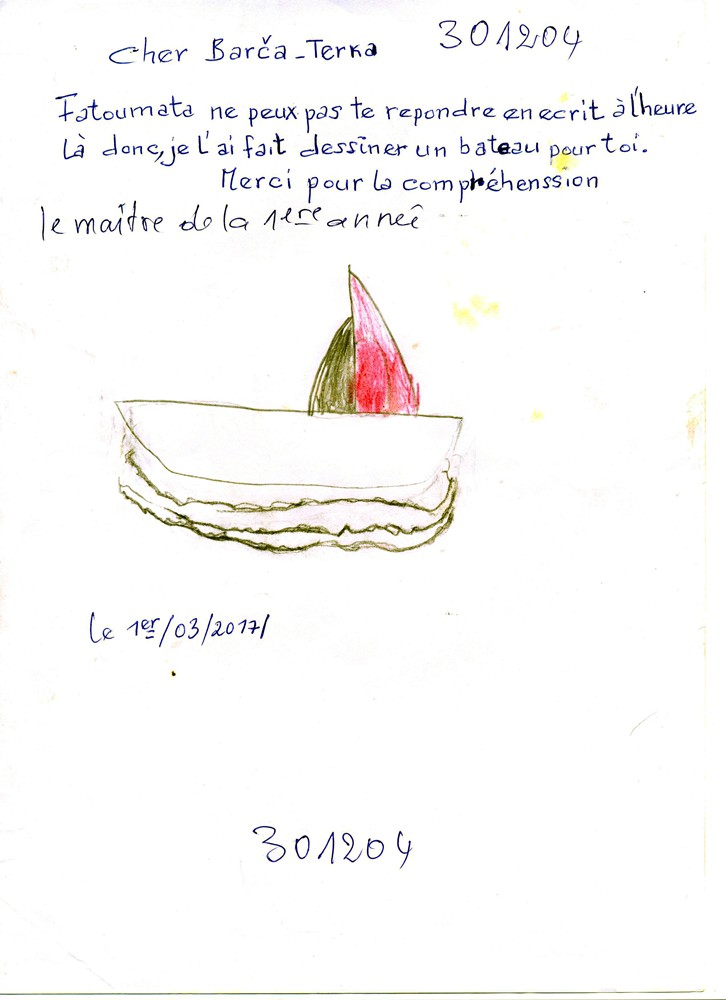 Cher Barča-Terka 301204
Fatoumata ne peux pas te repondre en ecrit à l'heure
Là donc, je l'ai fait dessiner un bateau pour toi.
Merci pour la compréhenssion
le maître de la 1ere anneê
le 1er/03/2017/
301204